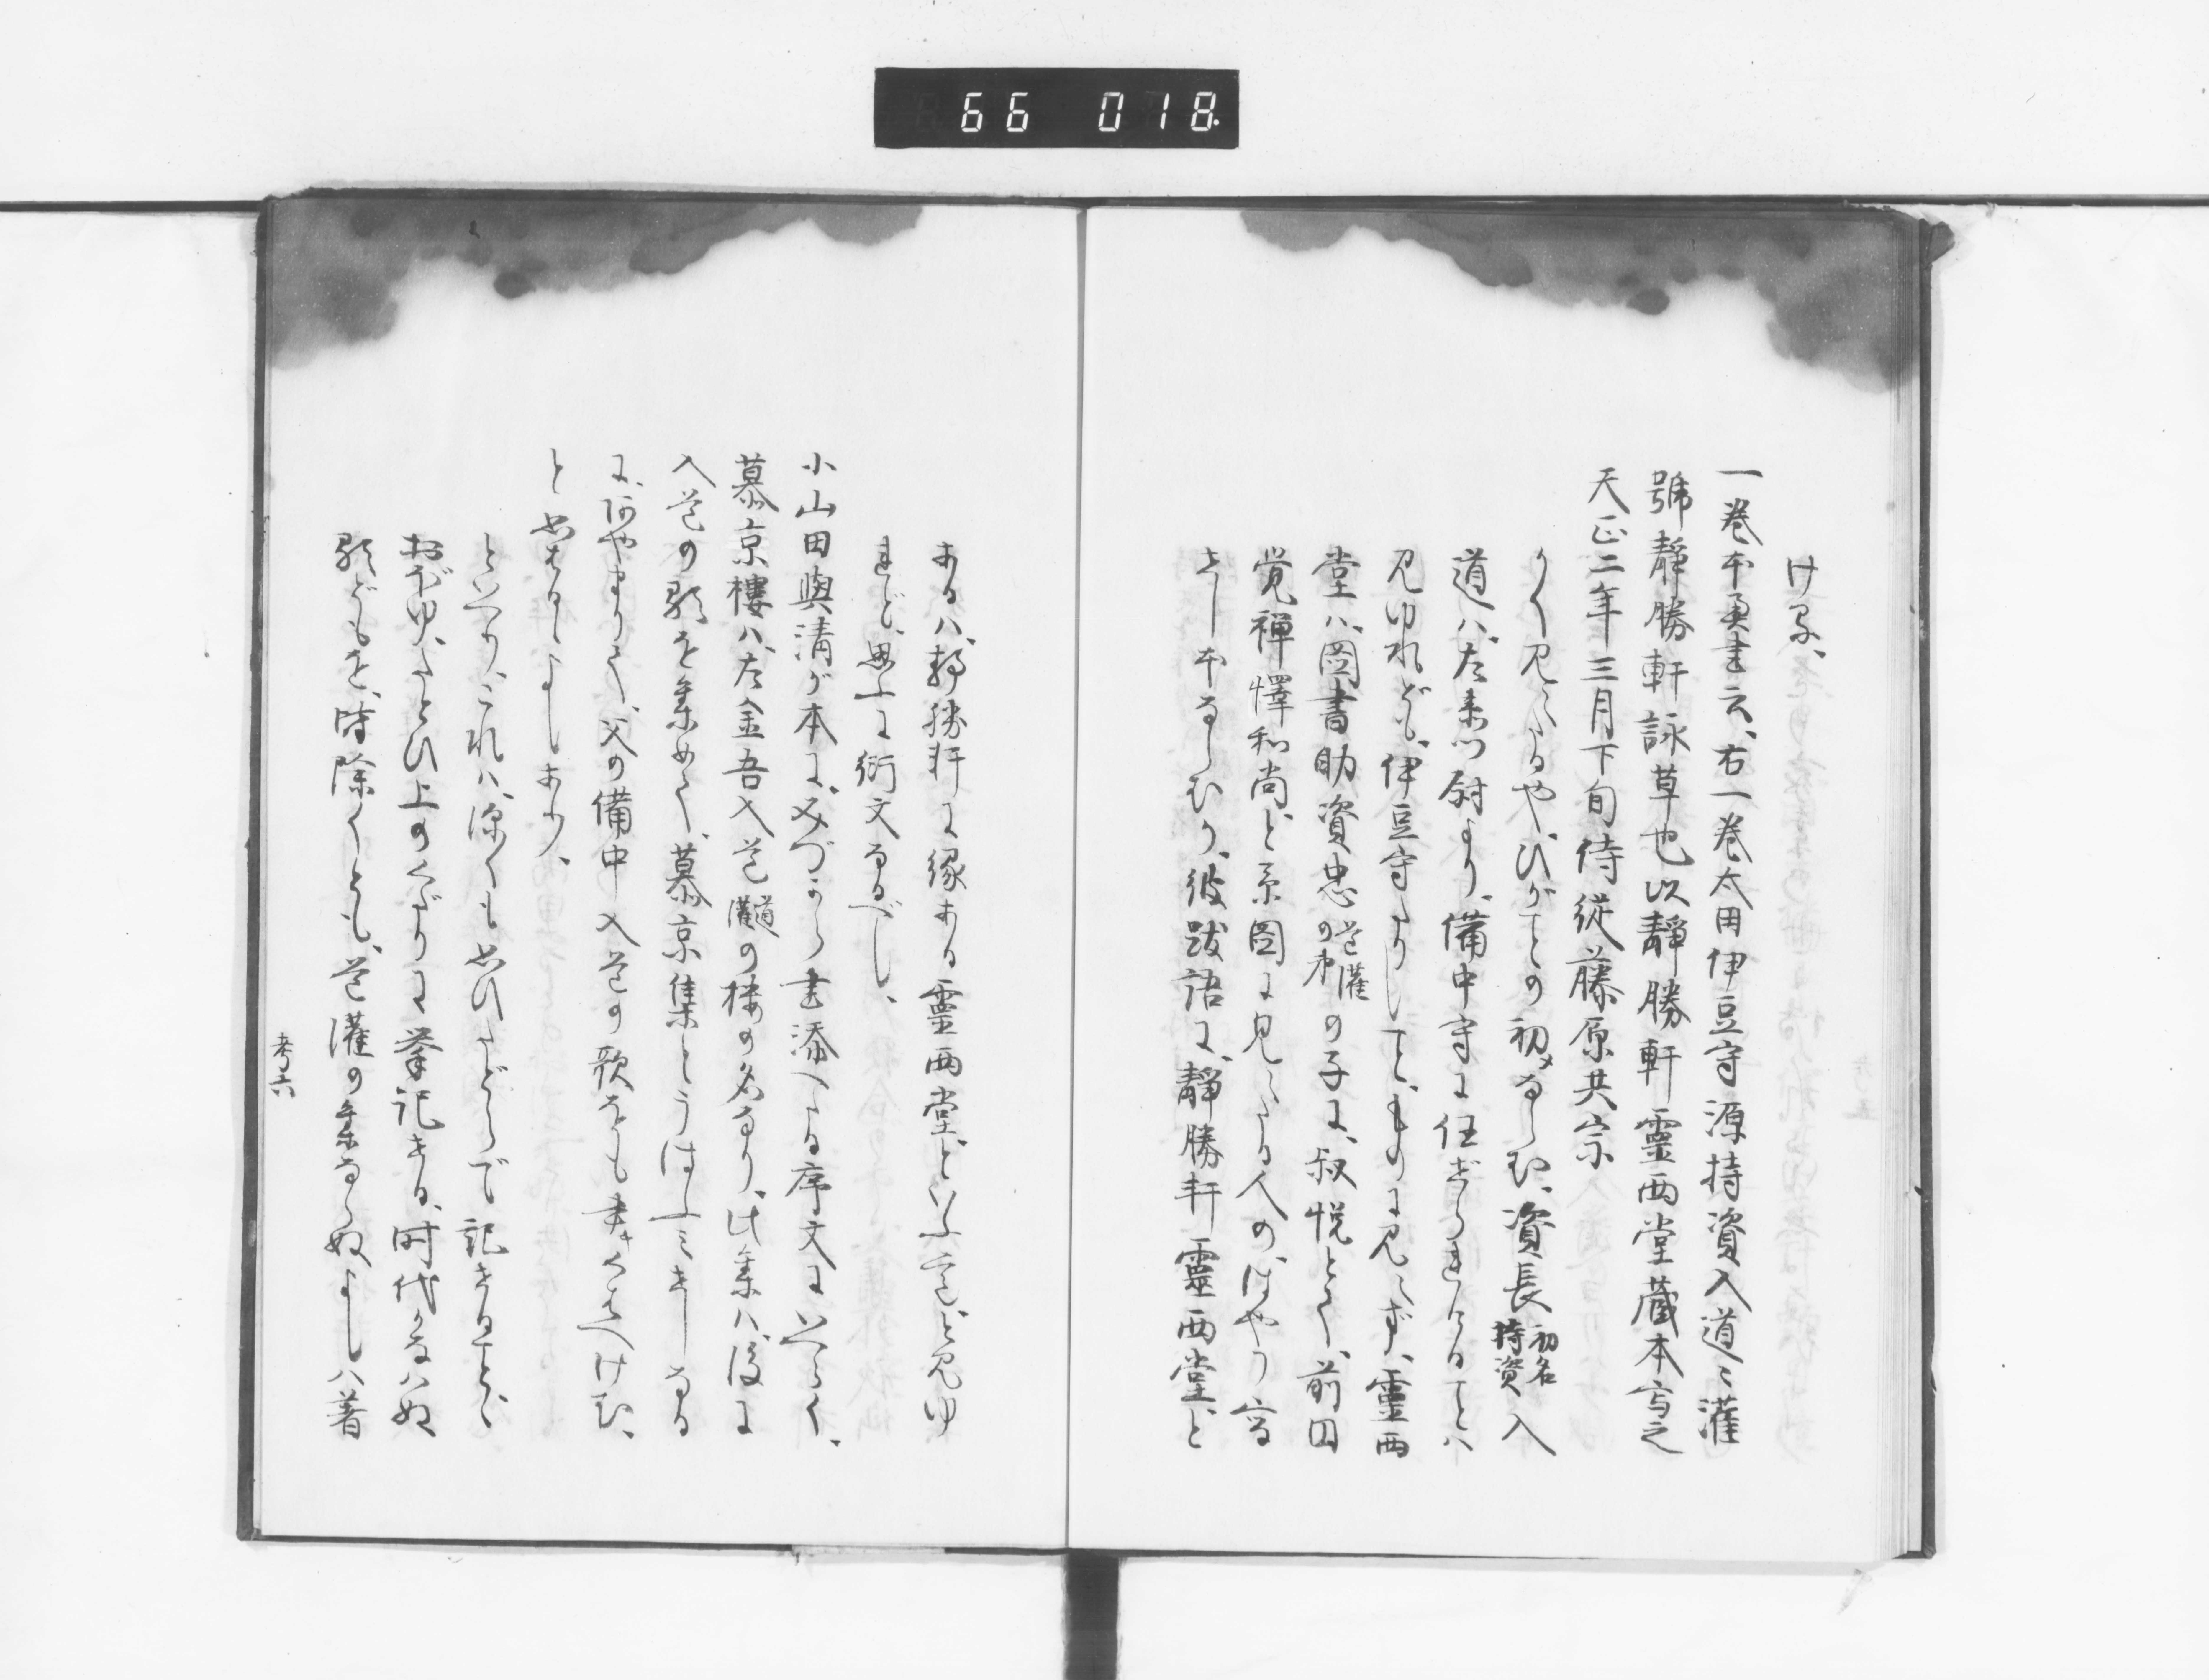 66 018.
けれ、
一巻本奥書云、右一巻太田伊豆守源持資入道々灌
號靜勝軒詠草也以靜勝軒靈西堂蔵本写之
天正二年三月下旬侍従藤原共宗
かく見えたるや、ひがことの初メならむ、資長 初名持資 入
道ハ、左衛門尉より、備中守に任ぜられけることハ
見ゆれども、伊豆守たりしこと、ものに見えず、靈西
堂ハ、図書助資忠の 道灌弟 の子に、叔悦とて、前円
覚禅懌和尚、ど系図に見えたる人の、はやう写
さし本ならむか、彼跋語に、靜勝軒靈西堂、と
あるハ、静勝軒に縁ある靈西堂、といふ意、と見ゆ
れど、思ふに衍文なるべし、
小山田與清が本に、みづから書添へたる序文にいへらく、
慕京樓ハ、左金吾入道 道灌 の樓の名なり、此集ハ、後に
入道の歌を集めて、慕京集とうはふミせしなる
に、あやまりて、父の備中入道の歌をも書キくはへけむ、
と思はるゝよしあり、
といへり、これハ、深くも思ひたどらで記せること、
おぼゆ、たとひ上のくだりに挙記せる、時代かなハぬ
歌どもを、時除くとも、道灌の集ならぬよしハ著
考六